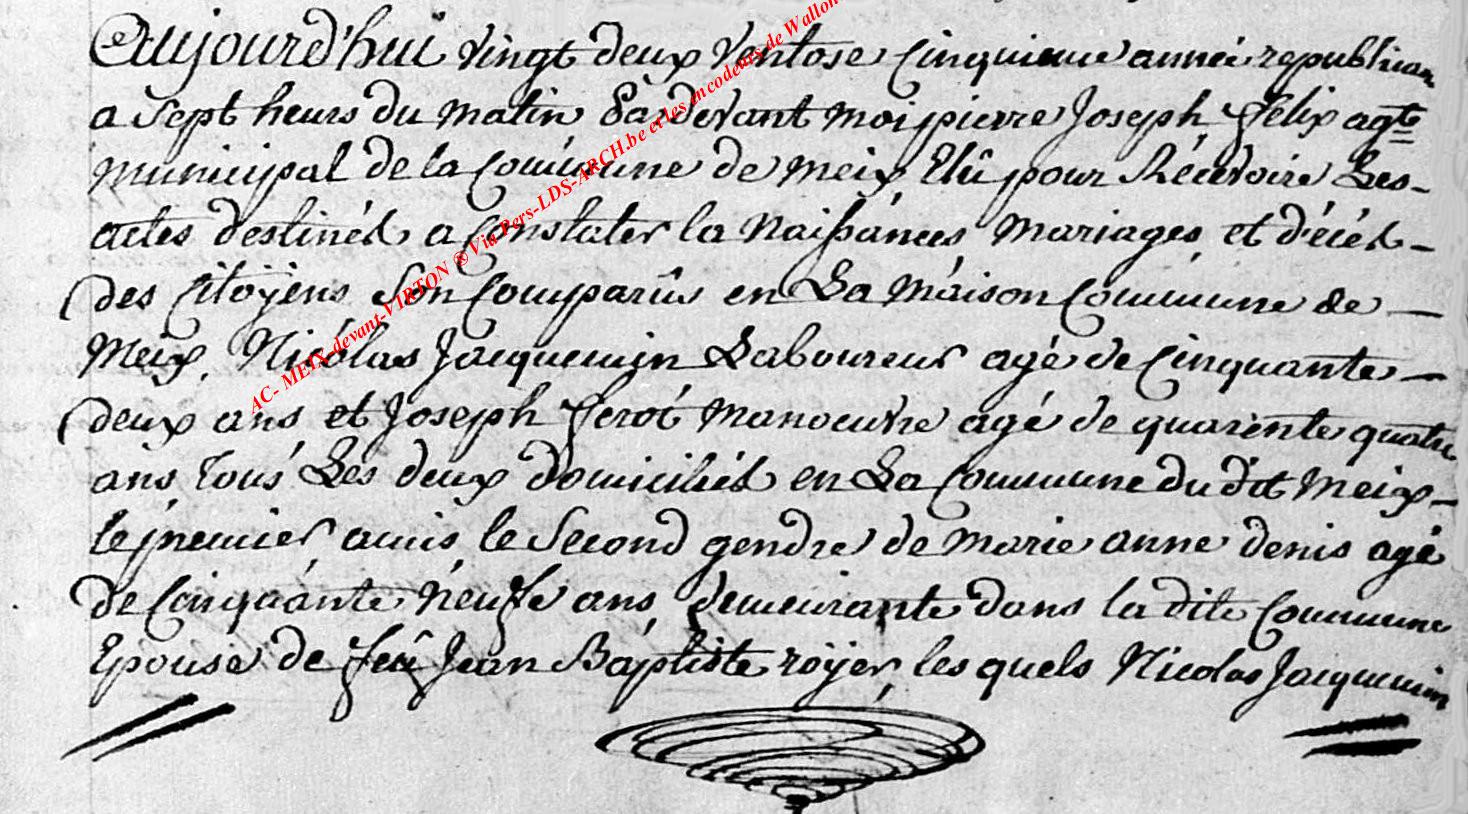 Aujourd'hui vingt deux Ventose cinquieme année republicain
a sept heurs du matin Pardevant moi pierre Joseph Felix agt
municipal de la commune de meix Elû pour Récevoire Les
actes destinés a constater la Naissánces mariages et décés
des citoÿens Son comparûs en La maison commune de
Meix, Nicolas Jacquemin Laboureur agé de cinquante
deux ans et Joseph Feroi manoeuvre agé de quarente quatre
ans tous Les deux domiciliés en La commune du dit meix
le premier amis le second gendre de marie anne denis agé
de cinquánte neufe ans demeurante dans la dite commune
Epouse de feû Jean Báptiste roÿer les quels Nicolas Jacquemin
AC- MEIX-devant-VIRTON ®Via Pers-LDS-ARCH.be et les encodeurs de Wallon